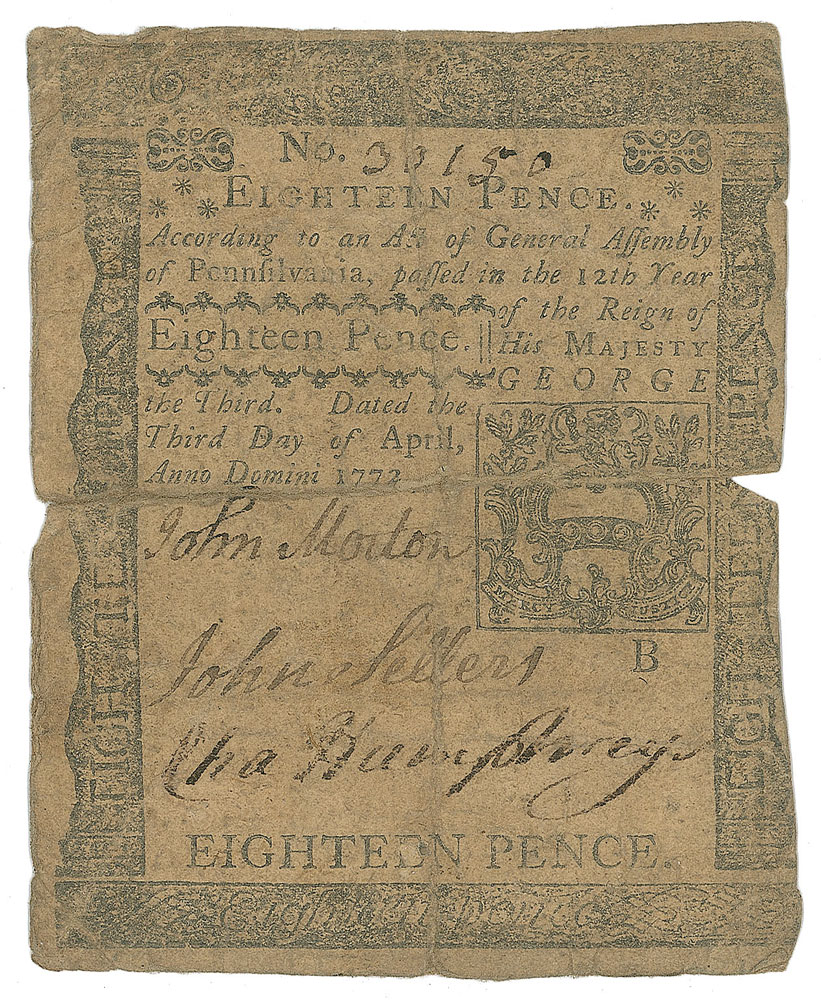 No. 33150
EIGHTEEN PENCE.
According to an Act of General Assembly
of Pennsilvania, passed in the 12th Year
of the Reign of
Eighteen Pence. His MAJESTY
GEORGE
the Third. Dated the
Third Day of April,
Anno Domini 1772
John Morton
MERCY JUSTICE
John Sellers
B
Cha Humphreys
EIGHTEEN PENCE.
Eighteen Pence
EIGHTEEN PENCE
EIGHTEEN PENCE